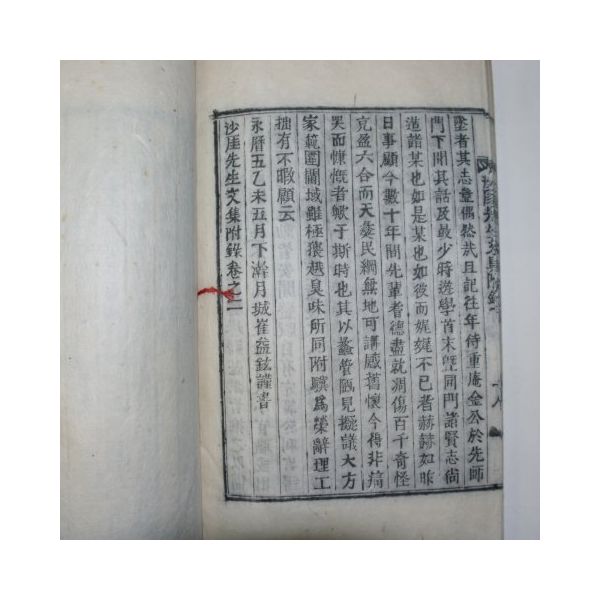 墜者其志豈偶然哉且記往年侍重庵金公於先師
門下聞其話及最少時遊學首末曁同門諸賢志尙
造詣某也如是某也如彼而娓娓不已者赫赫如昨
日事顧今數十年間先輩耆德盡就凋傷百千奇怪
充盈六合而天彜民綱無地可講感舊懷今得非痛
哭而慷慨者歟于斯時也其以蠡管陋見擬議大方
家範圍閫域雖極猥越臭味所同附驥爲榮辭理工
拙有不暇顧云
永曆五乙未五月下澣月城崔益鉉謹書
沙厓先生文集附錄卷之二